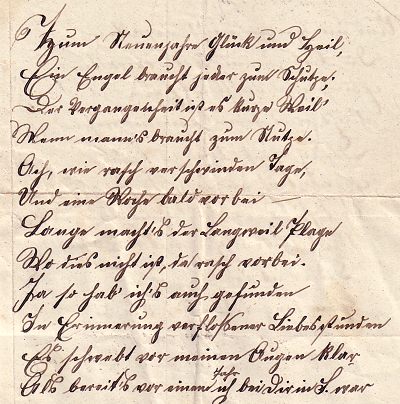 Zum Neuenjahre Glück und Heil,
Ein Engel braucht jeder zum Schutze;
Der Vergangenheit ist es kurze Weil'
Wenn mann's braucht zum Stütze.
Ach, wie rasch verschwinden Tage,
Und eine Woche bald vorbei —
Lange macht's der Langweil Plage
Wo dies nicht ist, da rasch vorbei.
Ja so hab' ich's auch gefunden
In Erinnerung verflossener Liebesstunden
Es schwebt vor meinen Augen klar
Als bereits vor einem Jahr ich bei Dir in S. war